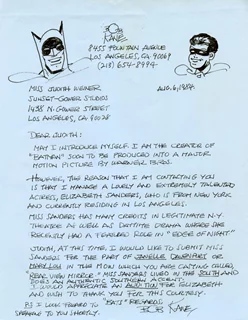 BOB KANE
8455 FOUNTAIN AVENUE
LOS ANGELES, CA 90069
(213) 654-8994
AUG. 6, 1984
MISS JUDITH WEINER
SUNSET-GOWER STUDIOS
1438 N. GOWER STREET
LOS ANGELES, CA 90028
DEAR JUDITH:
MAY I INTRODUCE MYSELF. I AM THE CREATOR OF
"BATMAN" SOON TO BE PRODUCED INTO A MAJOR
MOTION PICTURE BY WARNER BROS.
HOWEVER, THE REASON THAT I AM CONTACTING YOU
IS THAT I MANAGE A LOVELY AND EXTREMELY TALENTED
ACTRESS, ELIZABETH SANDERS, WHO IS FROM NEW YORK
AND CURRENTLY RESIDING IN LOS ANGELES.
MISS SANDERS HAS MANY CREDITS IN LEGITIMATE N.Y.
THEATRE AS WELL AS DAYTIME DRAMA WHERE SHE
RECENTLY HAD A FEATURED ROLE IN "EDGE OF NIGHT"
JUDITH, AT THIS TIME, I WOULD LIKE TO SUBMIT MISS
SANDERS FOR THE PART OF JANELLE
OR
IN THE MOW WHICH YOU ARE CASTING CALLED,
"REAR VIEW MIRROR." MISS SANDERS LIVED IN THE SOUTH AND
DOES AN AUTHENTIC SOUTHERN ACCENT.
I WOULD APPRECIATE AN AUDITION FOR ELIZABETH
AND WISH TO THANK YOU FOR THIS COURTESY.
P.S I LOOK FORWARD TO
SPEAKING TO YOU SHORTLY.
BEST REGARDS
BOB KANE